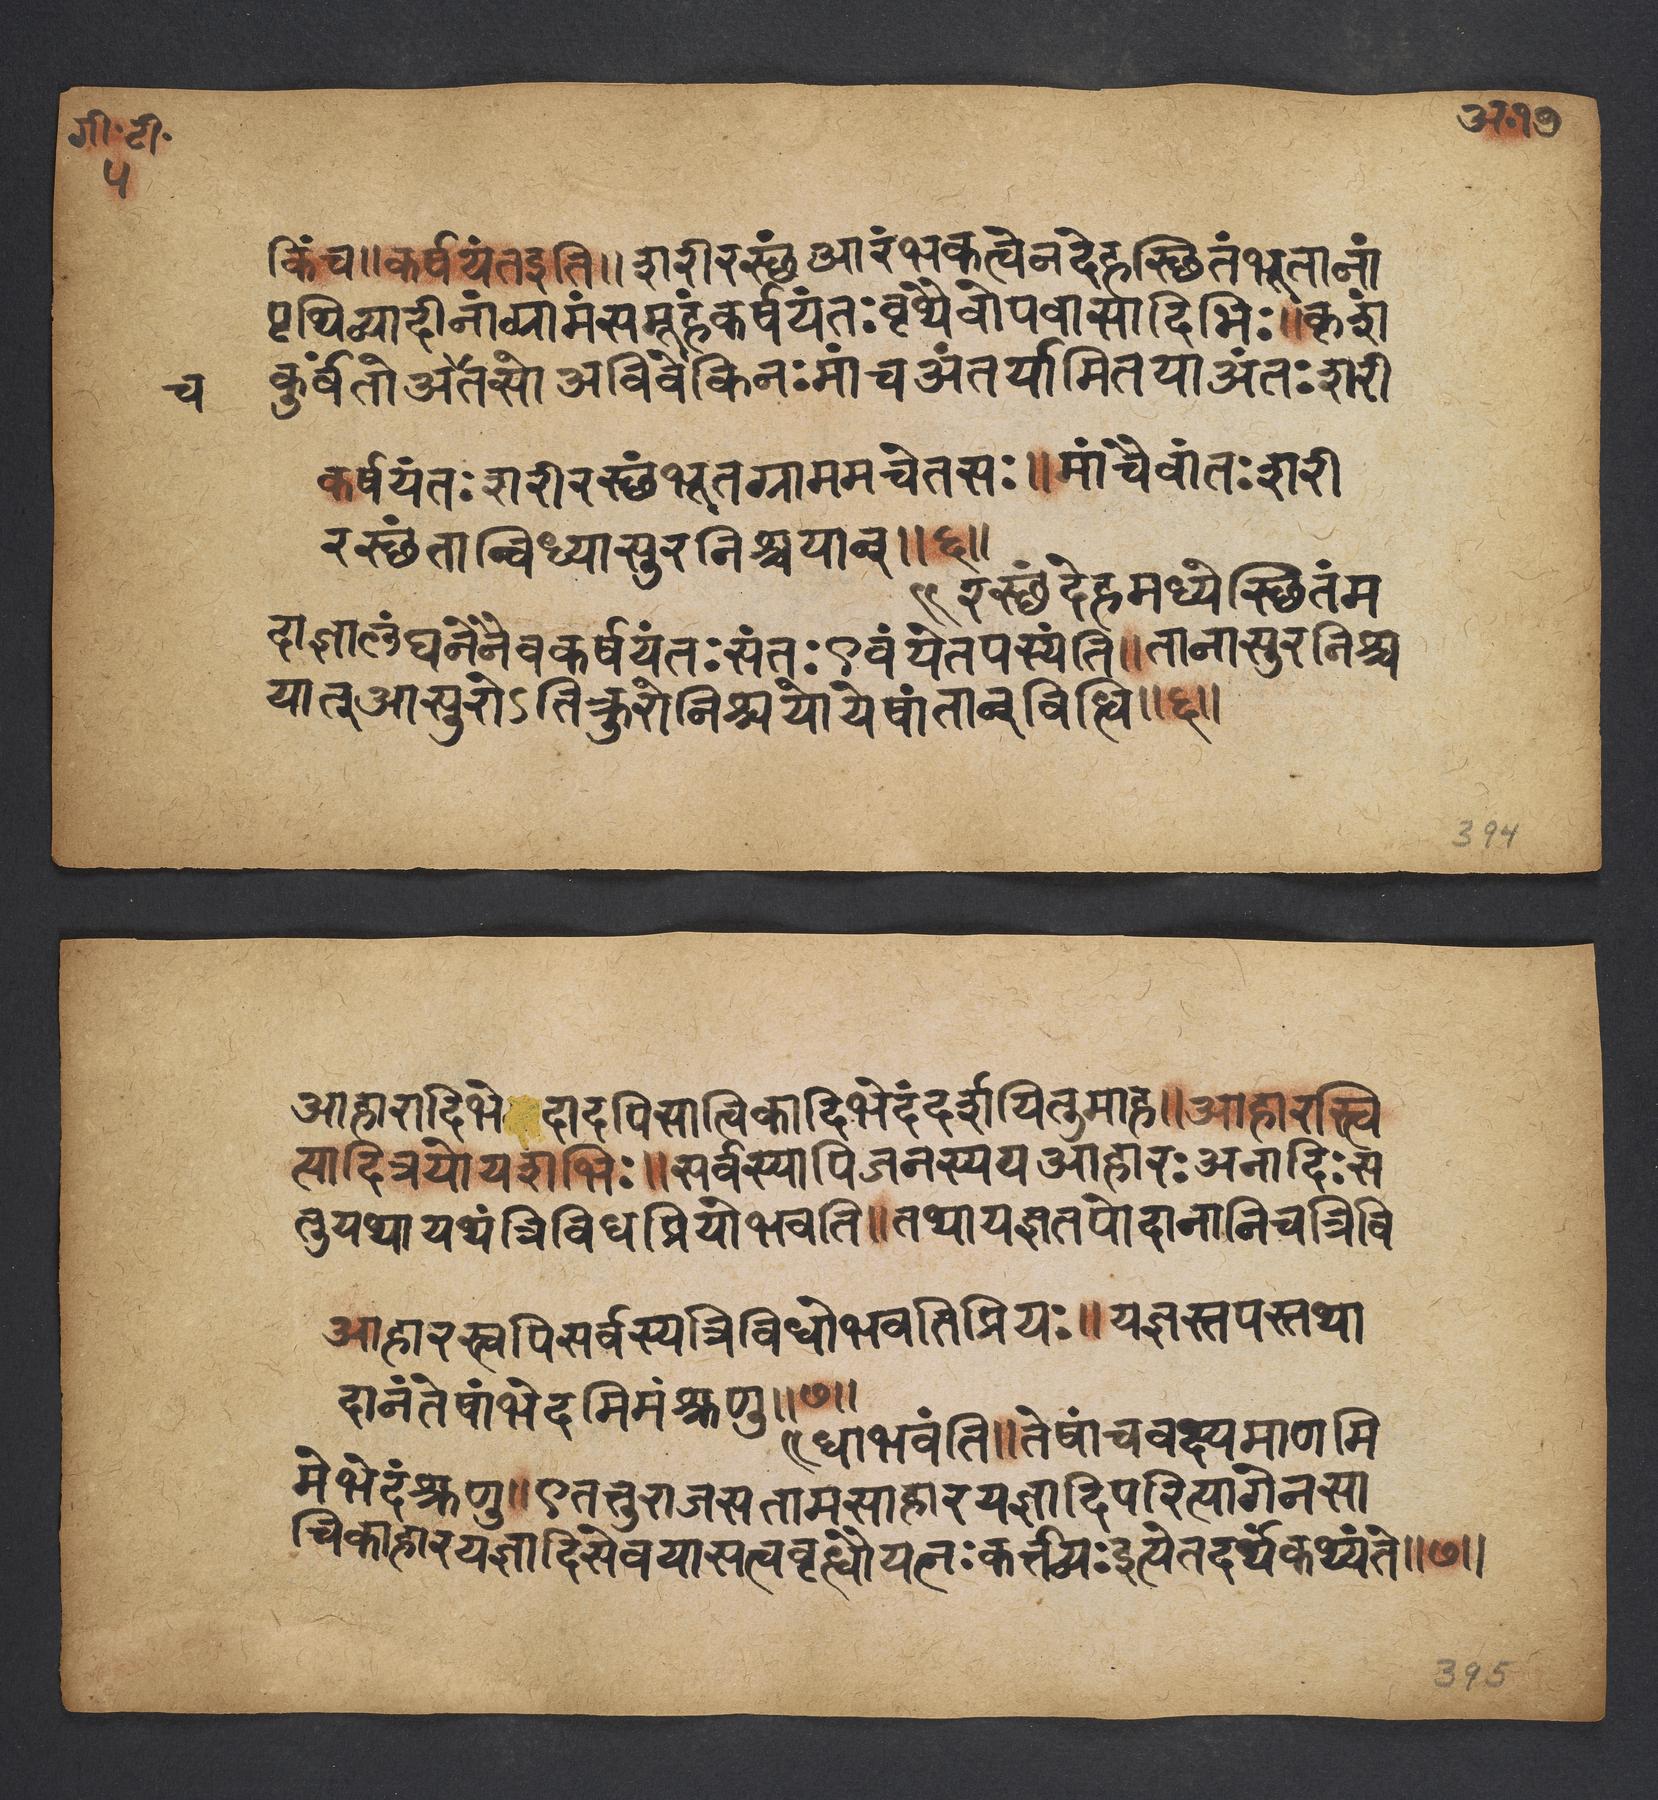 गी॰टी॰
५
अ॰१७
किंच॥कर्षयंतइति॥शरीरस्थंआरंभकत्वेनदेहस्थितंभूतानां
पृथिव्यादीनांग्रामंसमूहंकर्षयंतःवृथैवोपवासादिभिः॥कृशं
कुर्वंतोअतसोअविवेकिनःमांचअंतर्यामितयाअंतःशरी
च
कर्षयंतःशरीरस्थंभूतग्राममचेतसः॥मांचैवांतःशरी
रस्थंतान्विध्यासुरनिश्चयान्॥६॥
रस्थंदेहमध्येस्थितंम
दाज्ञालंघनेनैवकर्षयंतःसंतःएवंयेतपस्यंति॥तानासुरनिश्च
यान्आसुरोऽतिक्रुरोनिश्चयोयेषांतान्विद्धि॥६॥
394
आहारादिभेदादपिसात्विकादिभेदंदर्शयितुमाह॥आहारस्त्वि
त्यादित्रयोयशभिः॥सर्वस्यापिजनस्ययआहारःअनादिःस
तुयथायथंत्रिविधप्रियोभवति॥तथायज्ञतपोदानानिचत्रिवि
आहारस्त्वपिसर्वस्यत्रिविधोभवतिप्रियः॥यज्ञस्तपस्तथा
दानंतेषांभेदमिमंश्रृणु॥७॥
धाभवंति॥तेषांचवक्ष्यमाणमि
मेभेदंश्रृणु॥एतत्तुराजसतामसाहारयज्ञादिपरित्यागेनसा
त्विकाहारयज्ञादिसेवयासत्ववृद्धौयत्नःकर्त्तव्यःइत्येतदर्थंकथ्यंते॥७॥
395